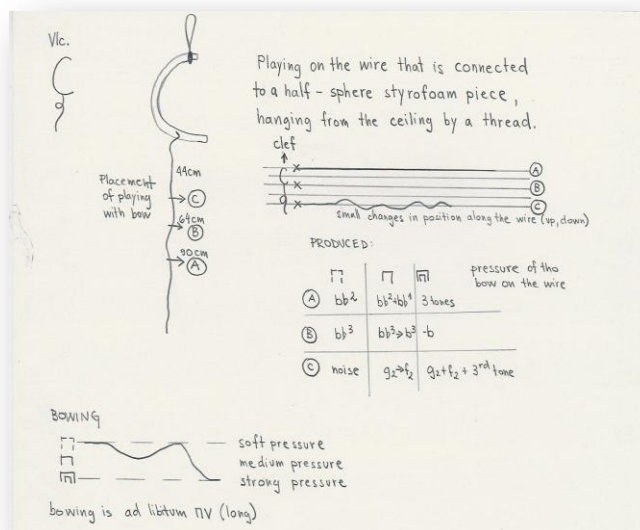 Vlc.
Playing on the wire that is connected
to a half-sphere styrofoam piece,
hanging from the ceiling by a thread.
clef
44cm
Placement
of playing
with bow
C
64cm
B
90cm
A
A
B
C
small changes in position along the wire (up, down)
PRODUCED:
pressure of the
bow on the wire
A bb² bb²+bb¹ 3 tones
B bb³ bb³→b³ -b
C noise g₂→f₂ g₂+f₂+3rd tone
BOWING
soft pressure
medium pressure
strong pressure
bowing is ad libitum ΠV (long)